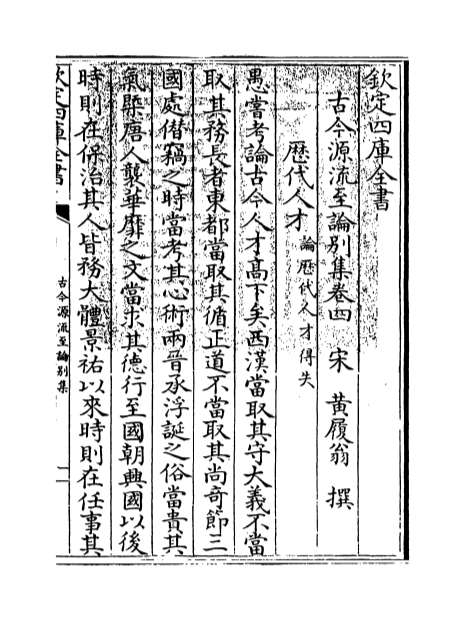 欽定四庫全書
古今源流至論別集卷四 宋 黃履翁 撰
歷代人才 論歷代人才得失
愚嘗考論古今人才高下矣西漢當取其守大義不當
取其務長者東都當取其循正道不當取其尚奇節三
國處僣竊之時當考其心術兩晉承浮誕之俗當貴其
氣槩唐人襲華靡之文當求其德行至國朝興國以後
時則在保治其人皆務大體景祐以來時則在任事其
欽定四庫全書
古今源流至論別集
一